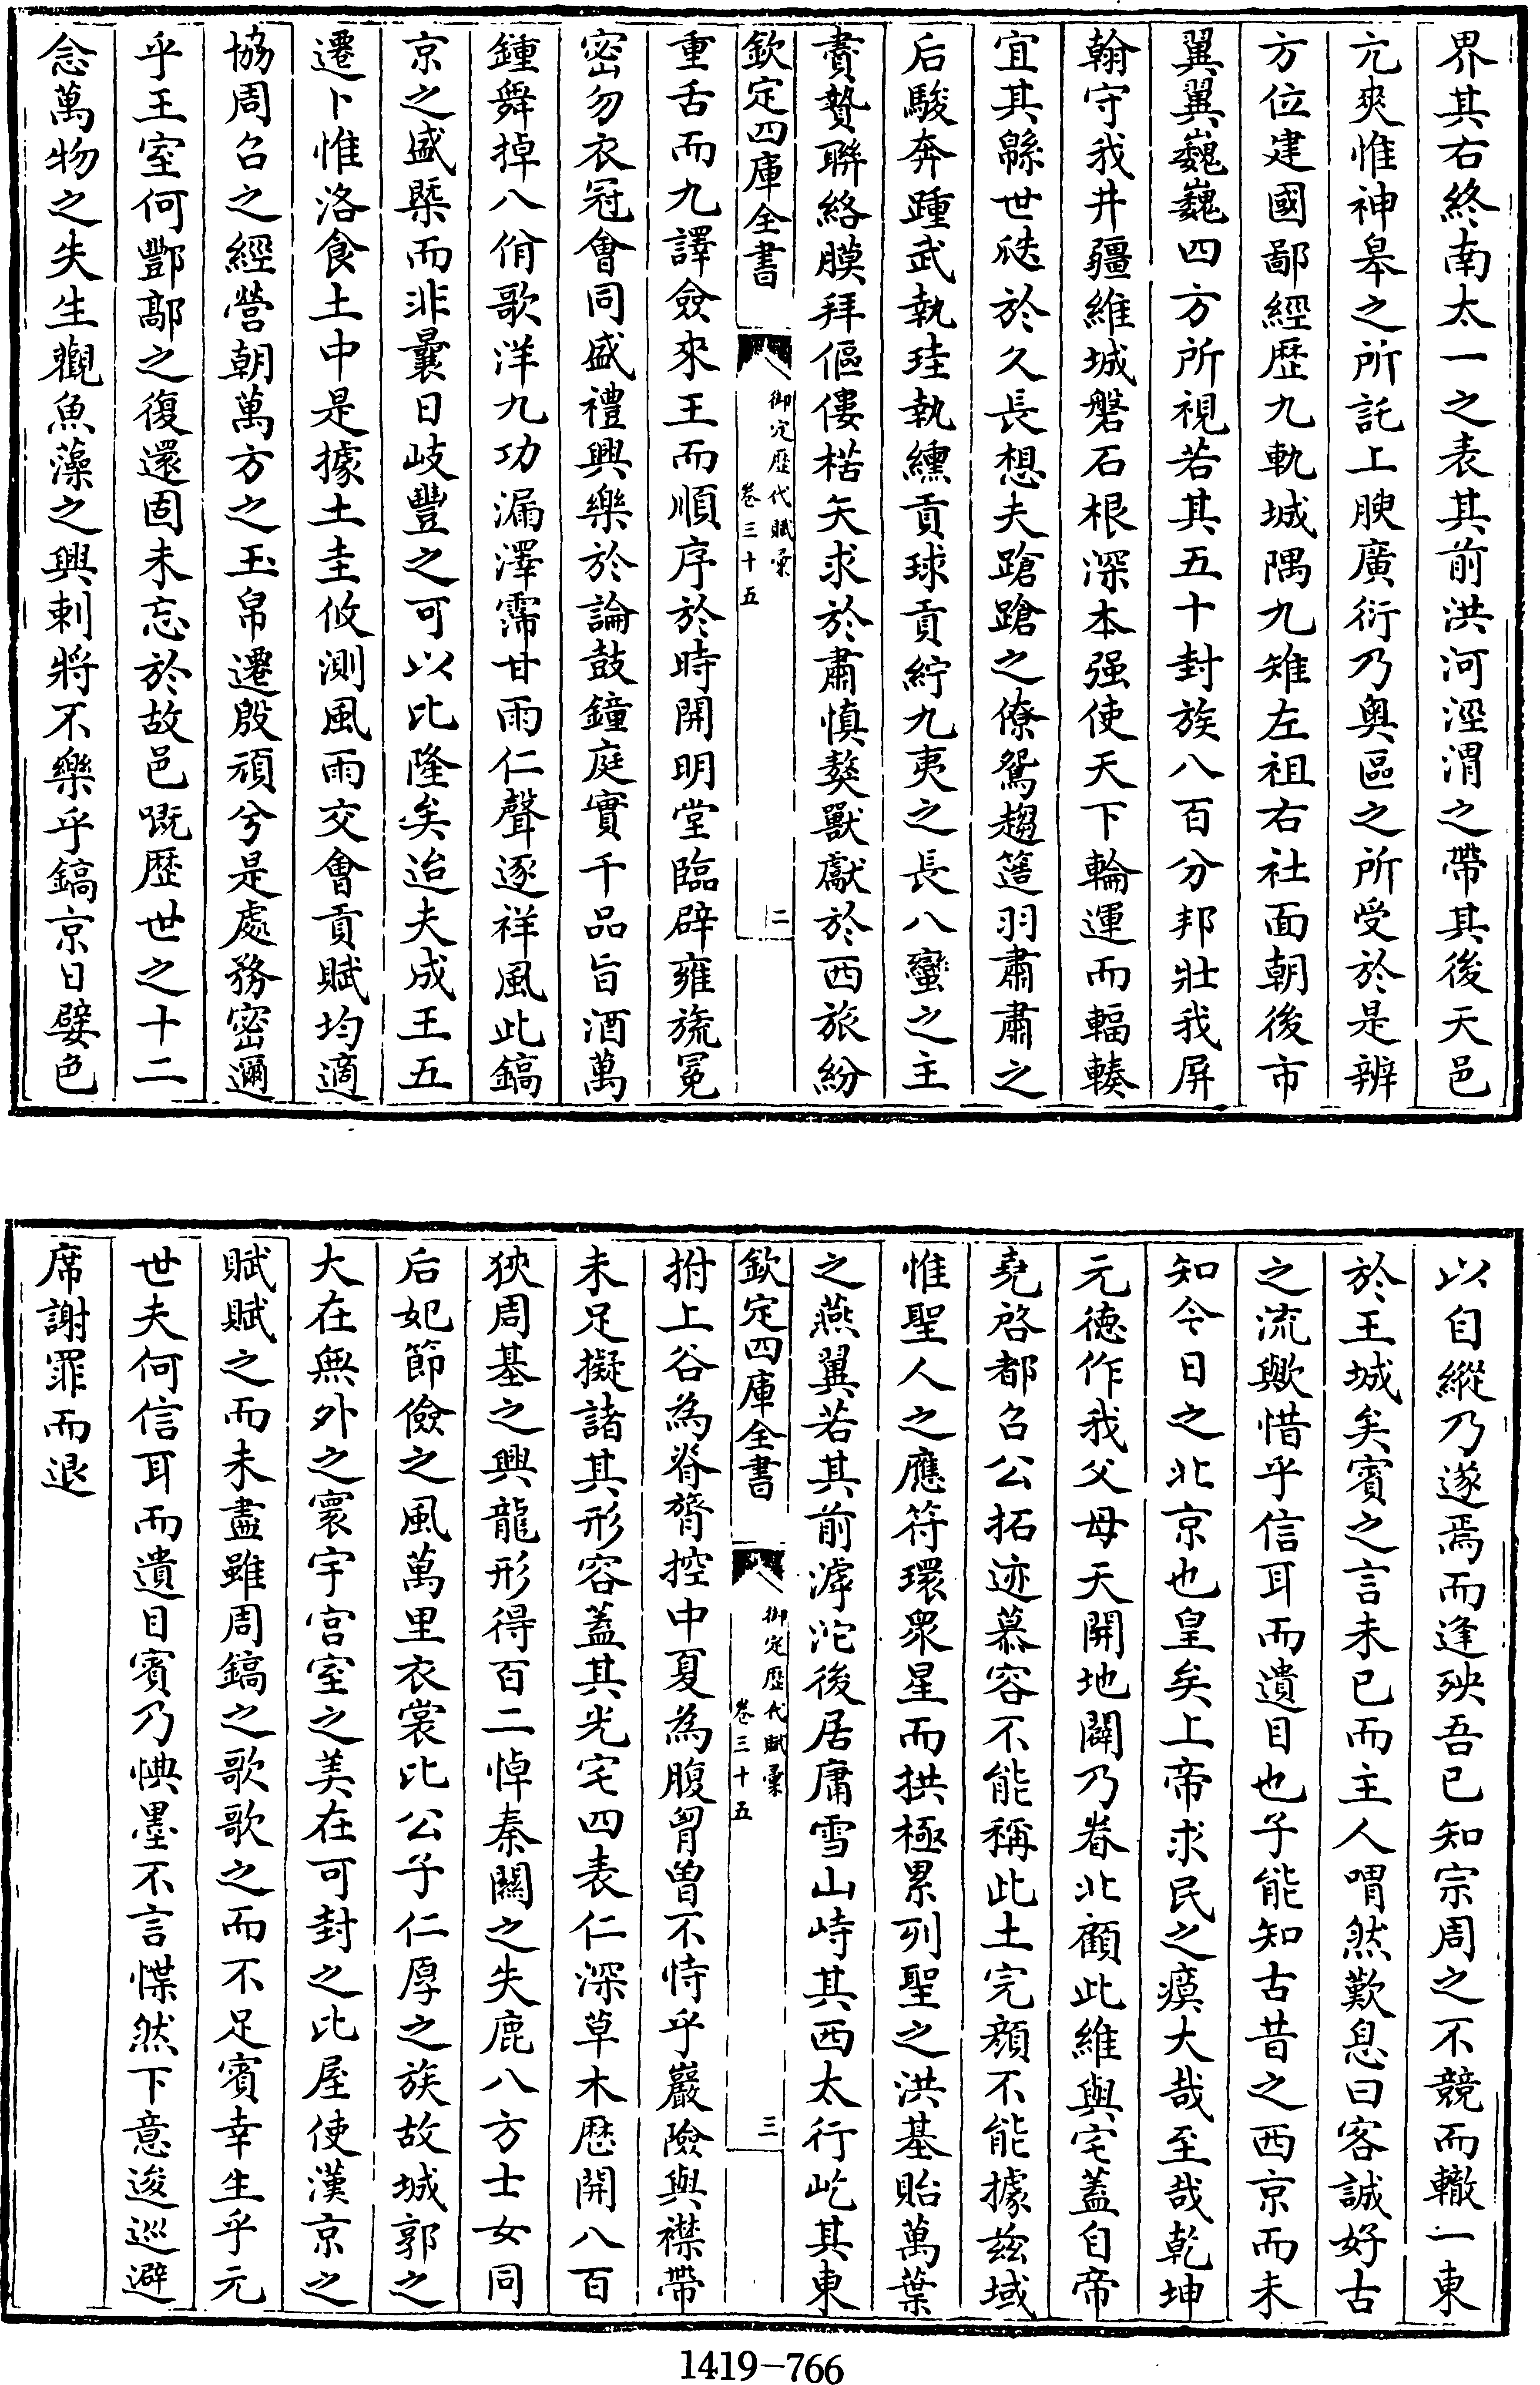 界其右終南太一之表其前洪河涇渭之帶其後天邑
亢爽惟神皋之所託上腴廣衍乃奧區之所受於是辨
方位建國鄙經歷九軌城隅九雉左祖右社面朝後市
翼翼巍巍四方所視若其五十封族八百分邦壯我屏
翰守我井疆維城磐石根深本强使天下輪運而輻輳
宜其緜世祚於久長想夫蹌蹌之僚鴛趨簉羽肅肅之
后駿奔踵武執珪執纁貢球貢紵九夷之長八蠻之主
賮贄聯絡膜拜傴僂楛矢求於肅慎獒獸獻於西旅紛
欽定四庫全書
御定歷代賦彙
卷三十五
二
重舌而九譯僉來王而順序於時開明堂臨辟雍旒冕
密勿衣冠會同盛禮興樂於論鼓鐘庭實千品旨酒萬
鍾舞掉八佾歌洋九功漏澤霈甘雨仁聲逐祥風此鎬
京之盛槩而非曩日岐豐之可以比隆矣迨夫成王五
遷卜惟洛食土中是據土圭攸測風雨交會貢賦均適
協周召之經營朝萬方之玉帛遷殷頑兮是處務密邇
乎王室何酆鄗之復還固未忘於故邑嘅歷世之十二
念萬物之失生觀魚藻之興刺將不樂乎鎬京日嬖色
以自縱乃遂焉而逢殃吾已知宗周之不競而轍一東
於王城矣賓之言未已而主人喟然歎息曰客誠好古
之流歟惜乎信耳而遺目也子能知古昔之西京而未
知今日之北京也皇矣上帝求民之瘼大哉至哉乾坤
元德作我父母天開地闢乃眷北顧此維與宅蓋自帝
堯啓都召公拓迹慕容不能稱此土完顏不能據茲域
惟聖人之應符環衆星而拱極累列聖之洪基貽萬葉
之燕翼若其前滹沱後居庸雪山峙其西太行屹其東
欽定四庫全書
御定歷代賦彙
卷三十五
三
拊上谷為脊膂控中夏為腹胷曽不恃乎巖險與襟帶
未足擬諸其形容蓋其光宅四表仁深草木歷開八百
狹周基之興龍形得百二悼秦關之失鹿八方士女同
后妃節儉之風萬里衣裳比公子仁厚之族故城郭之
大在無外之寰宇宮室之美在可封之比屋使漢京之
賦賦之而未盡雖周鎬之歌歌之而不足賓幸生乎元
世夫何信耳而遺目賓乃㥏墨不言慄然下意逡巡避
席謝罪而退
1419-766